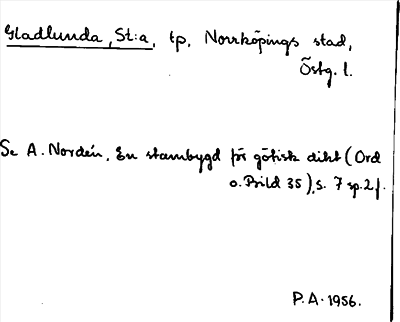 Gladlunda, St:a, tp, Norrköpings stad,
Östg. l.
Se A. Nordén, En stambygd för götisk dikt (Ord
o. Bild 35), s. 7 sp. 2 f.
P.A. 1956.